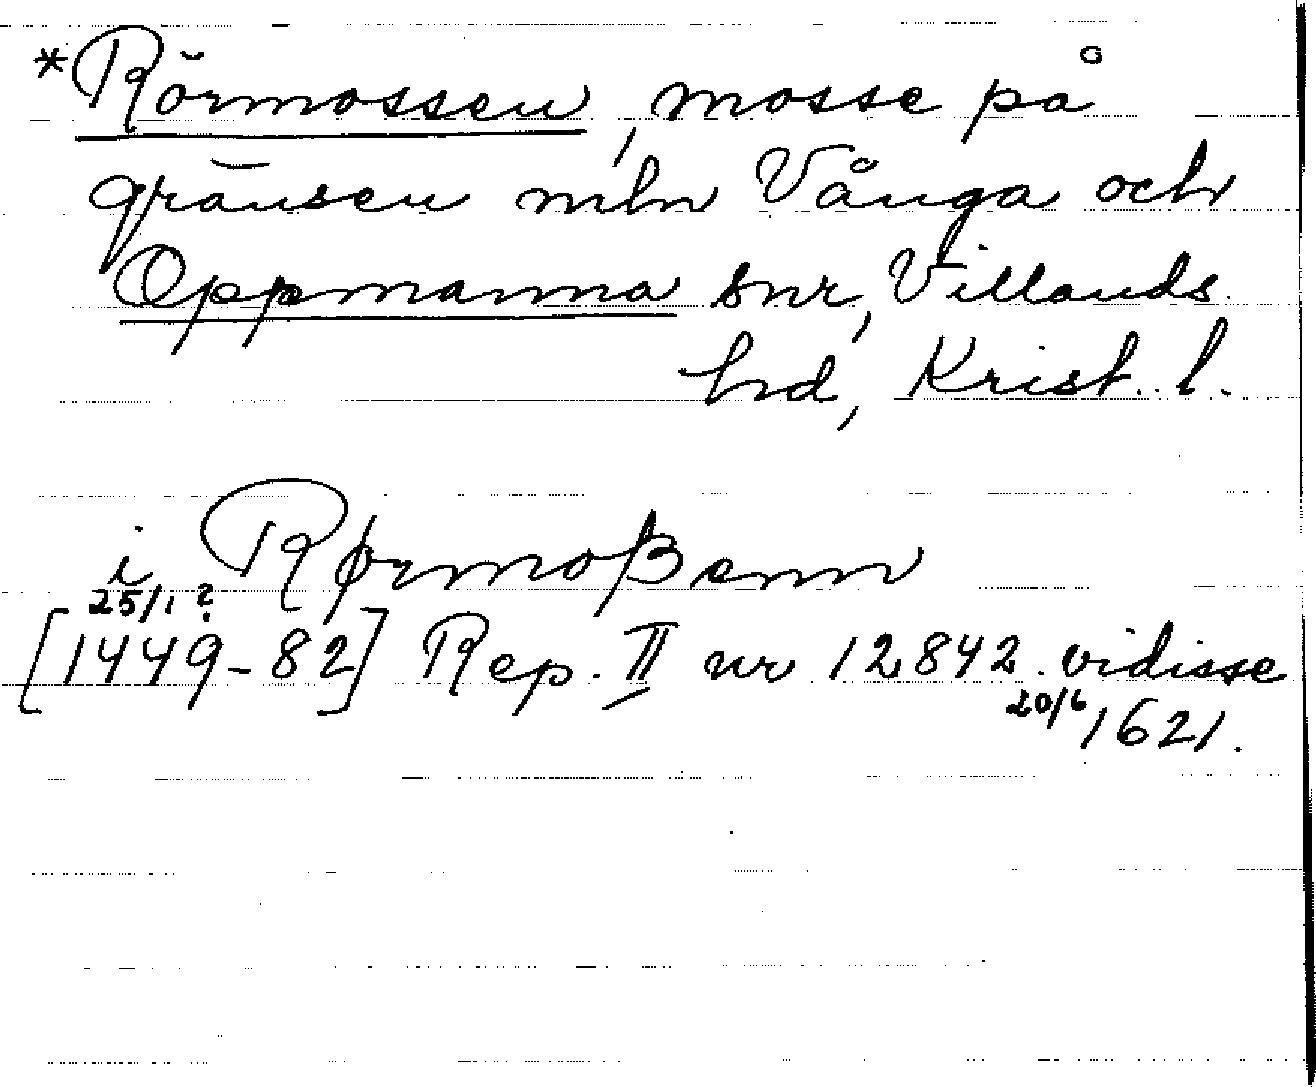 *Rörmossen, mosse på
gränsen mln Vånga och
Oppmanna snr, Villands
hd, Krist. l.
i Rørmoßenn
25/1 ?
[1449-82] Rep. II nr 12842 vidisse
20/6 1621.